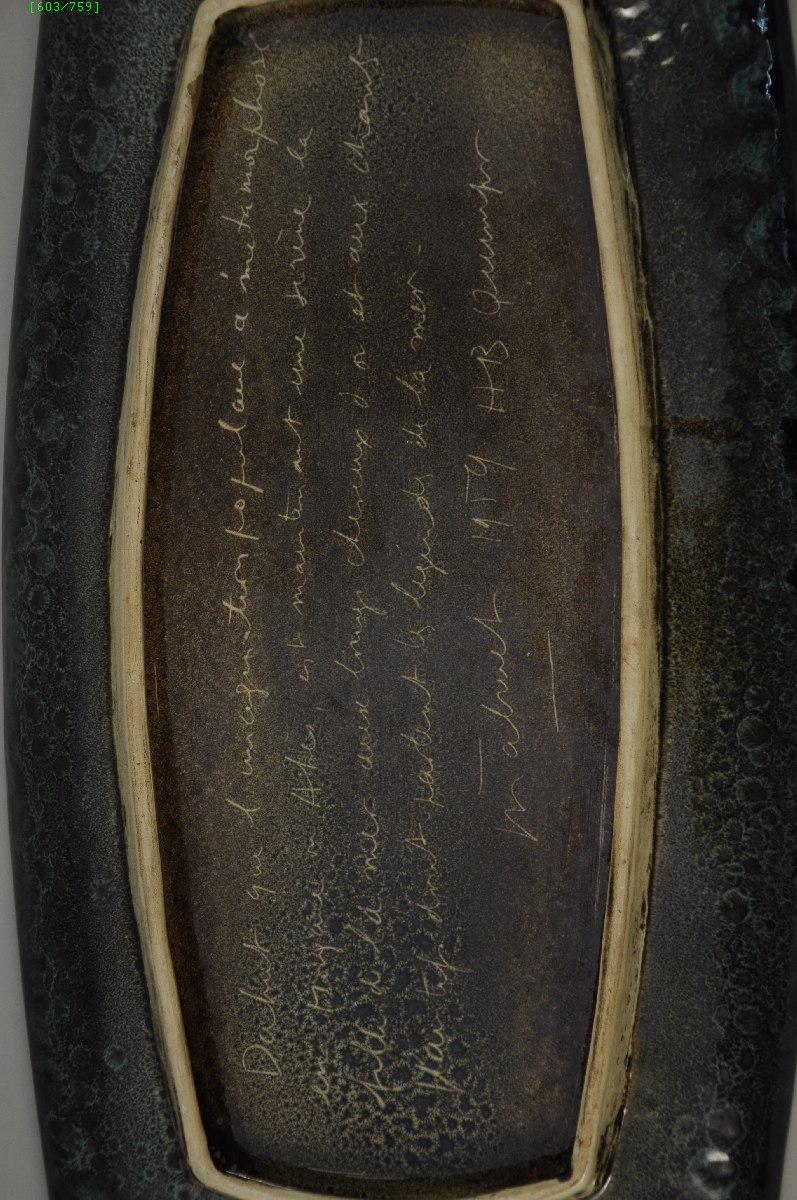 [603/759]
Dahut que l'imagination populaire a métamorphosé
en Morgane ou Ahès, est maintenant une sirène la
fille de la mer aux longs cheveux d'or et aux chants
plaintifs dont parlent les légendes de la mer -
1959 HB Quimper